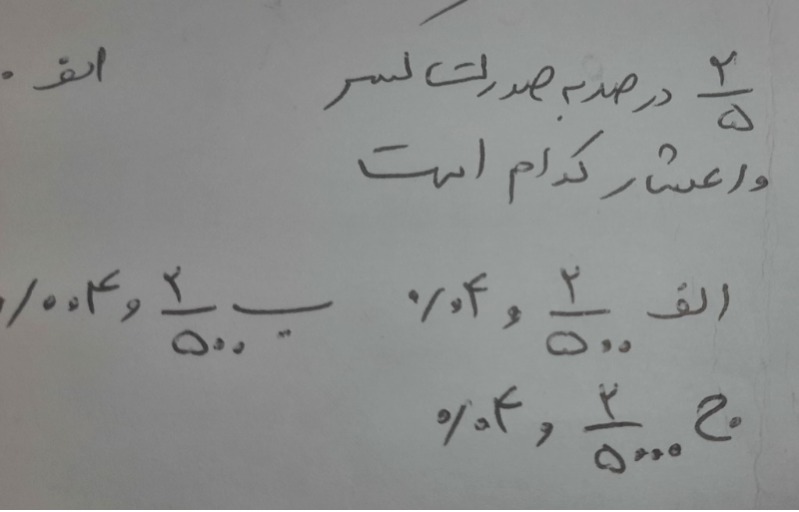 ۲/۵ درصد به صورت کسر
و اعشار کدام است
الف ۲/۵۰۰ و ۰/۰۴
ب ۲/۵۰۰ و ۰/۰۰۴
ج ۲/۵۰۰۰ و ۰/۰۴
الف